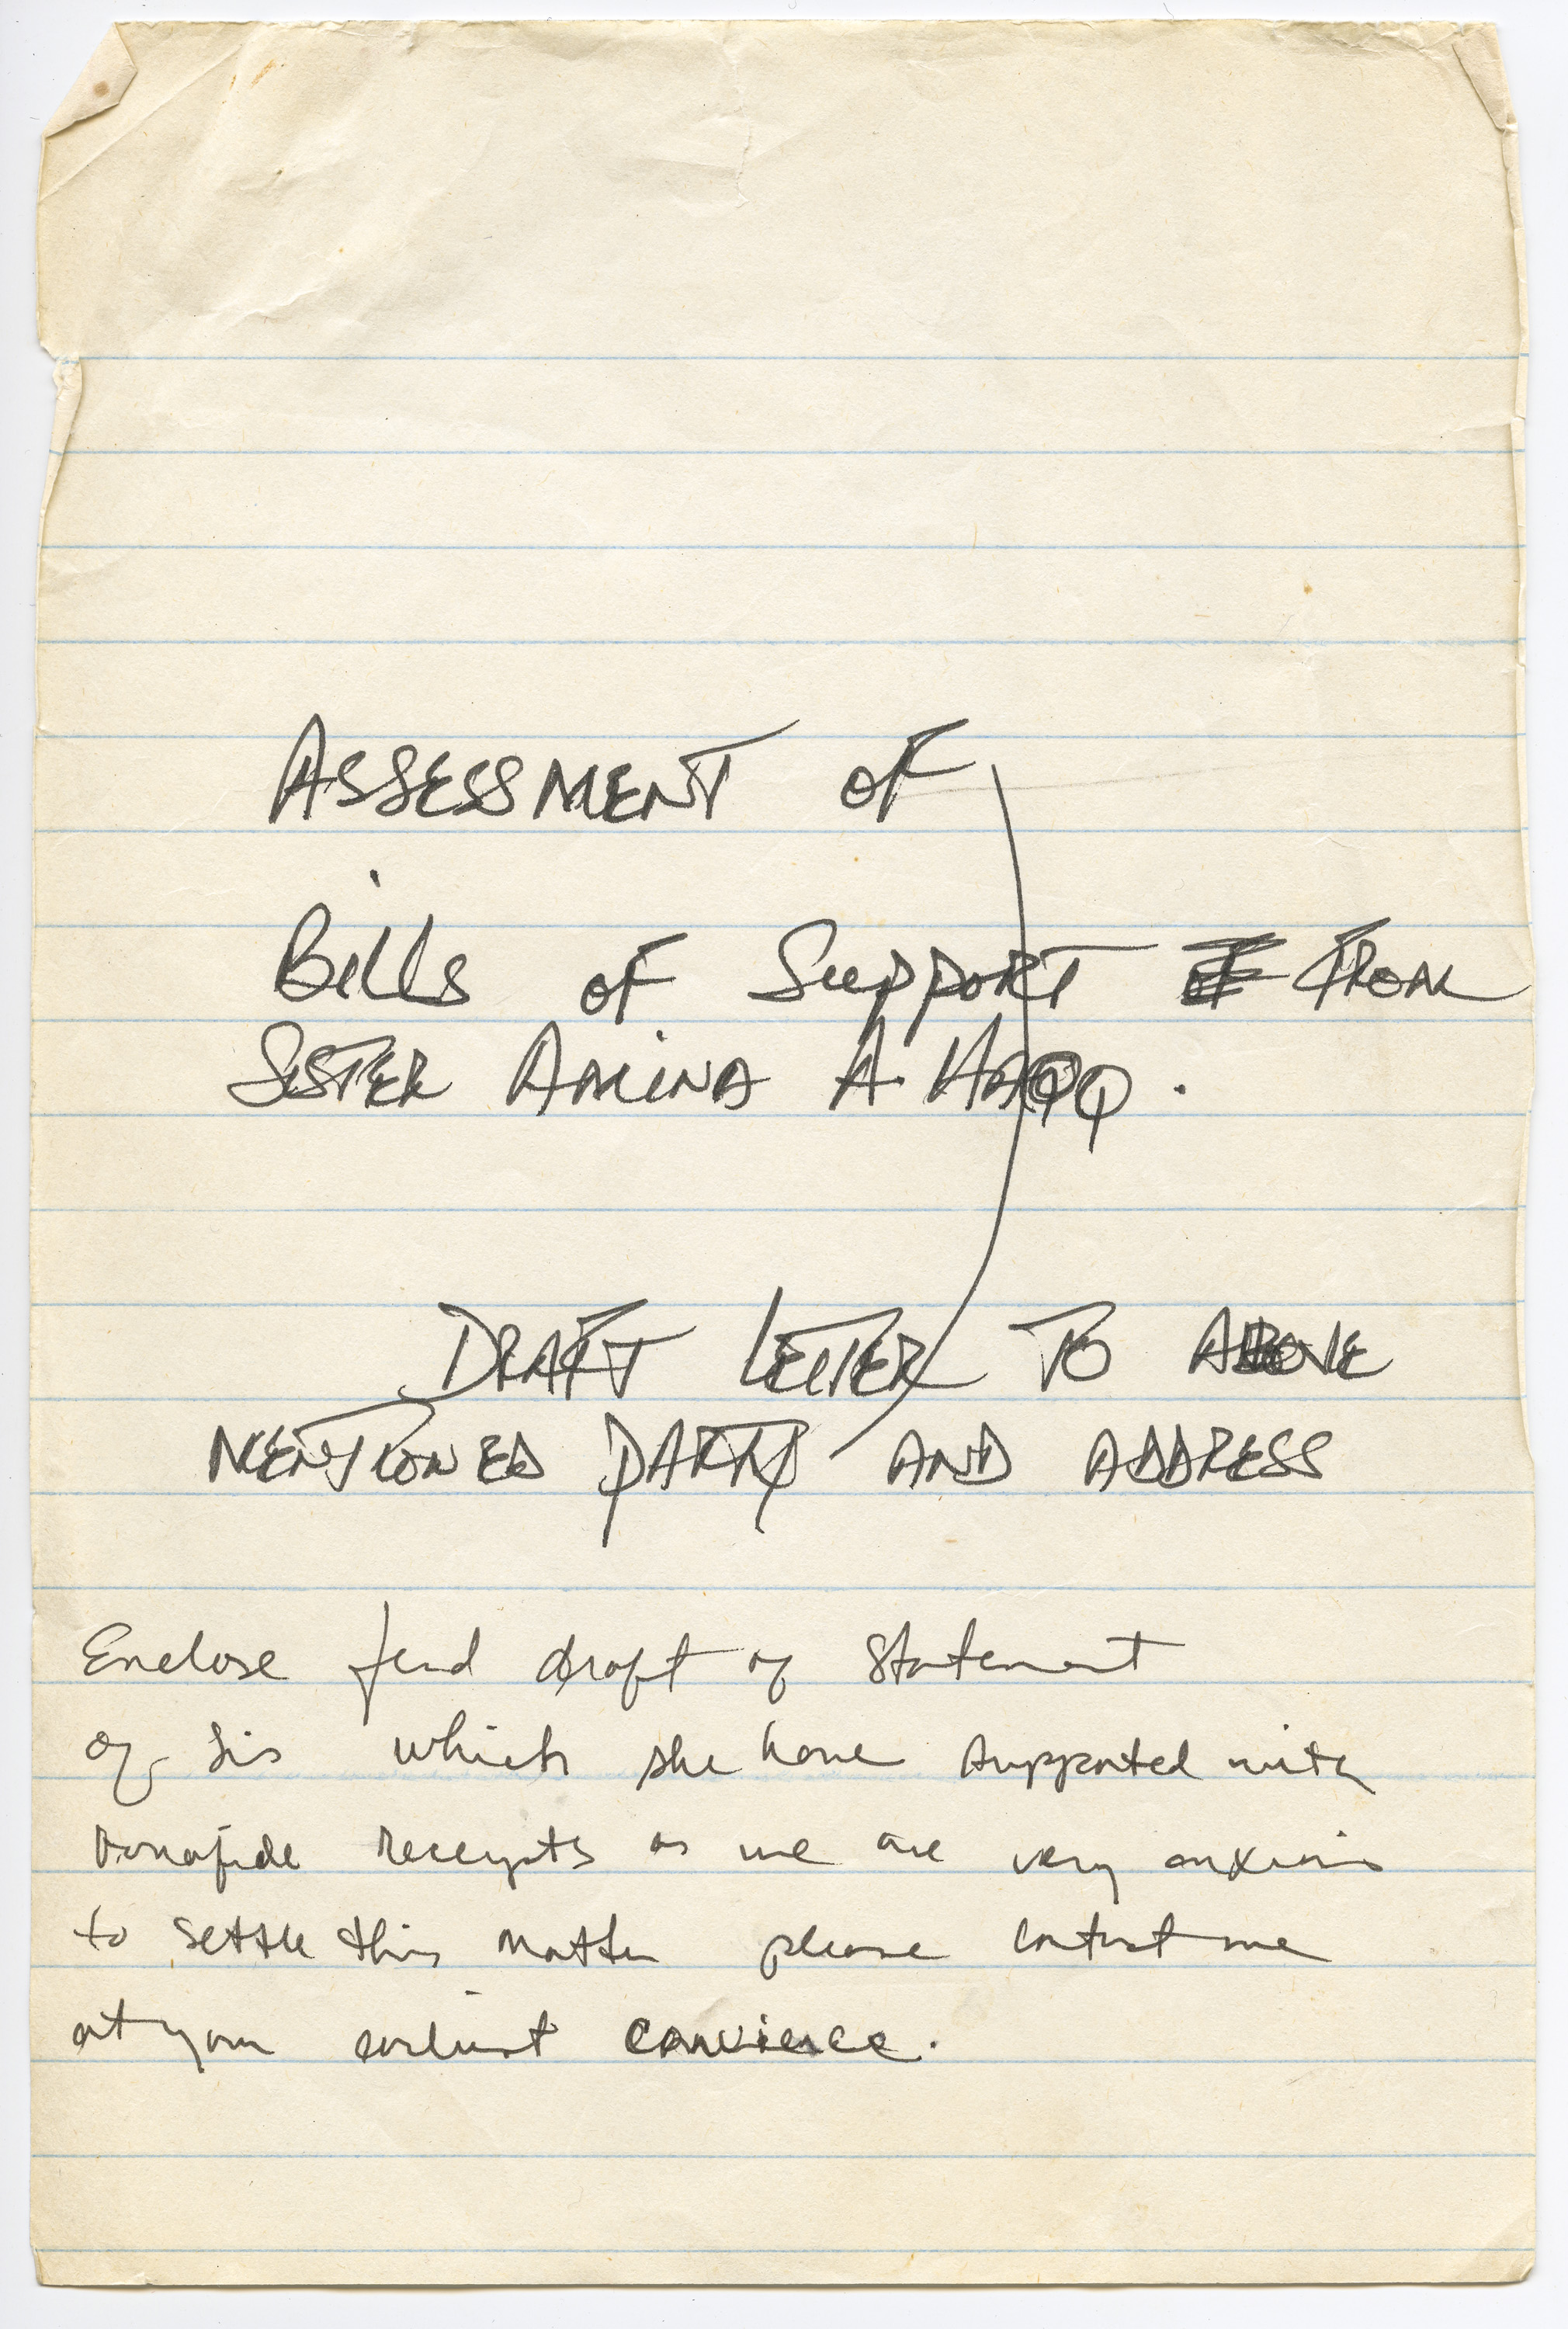 ASSESSMENT OF
Bills OF Support FROM
SISTER AMINA A. HAQQ.
DRAFT LETTER TO ABOVE
MENTIONED PARTY AND ADDRESS
Enclose find draft of Statement
of Sis which she have supported with
bonafide receipts as we are very anxious
to settle this matter please contact me
at your earliest convience.